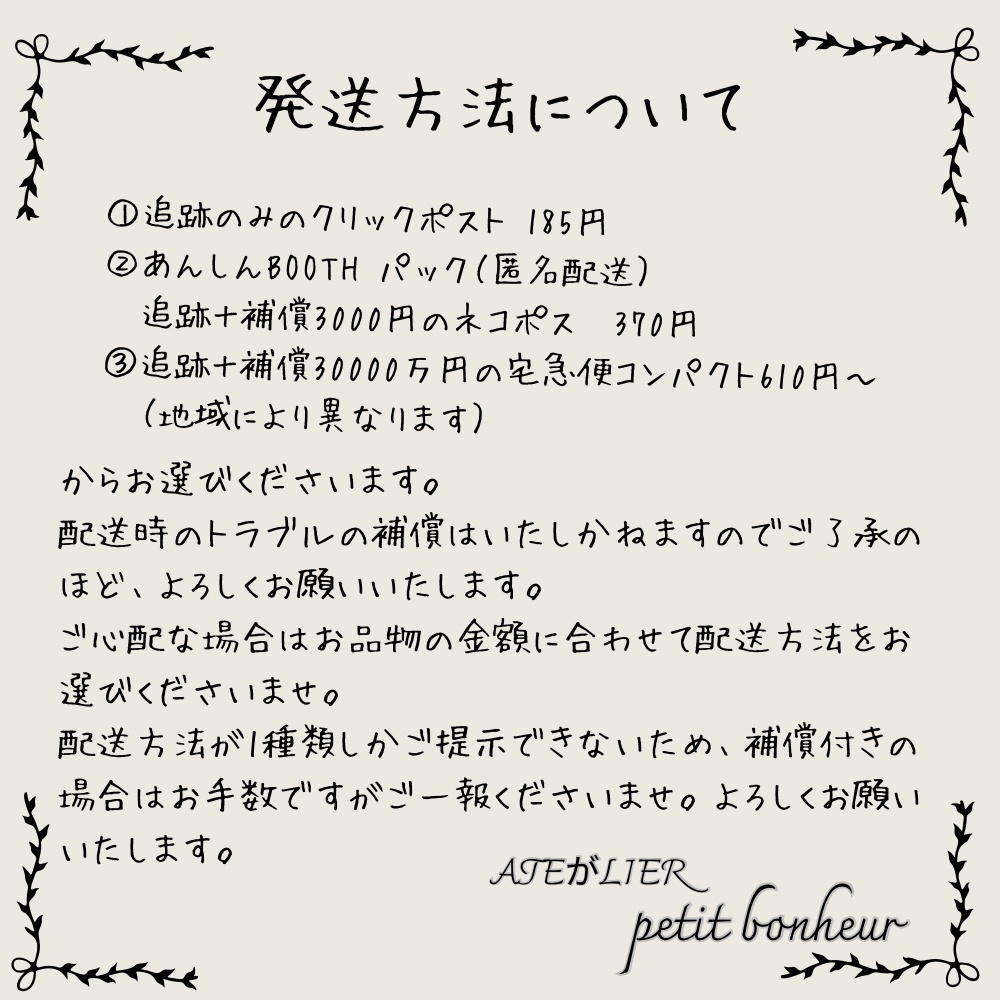 発送方法について
①追跡のみのクリックポスト 185円
②あんしんBOOTH パック(匿名配送)
追跡+補償3000円のネコポス 370円
③追跡+補償30000万円の宅急便コンパクト610円~
(地域により異なります)
からお選びくださいます。
配送時のトラブルの補償はいたしかねますのでご了承の
ほど、よろしくお願いいたします。
ご心配な場合はお品物の金額に合わせて配送方法をお
選びくださいませ。
配送方法が1種類しかご提示できないため、補償付きの
場合はお手数ですがご一報くださいませ。よろしくお願い
いたします。
ATEがLIER
petit bonheur